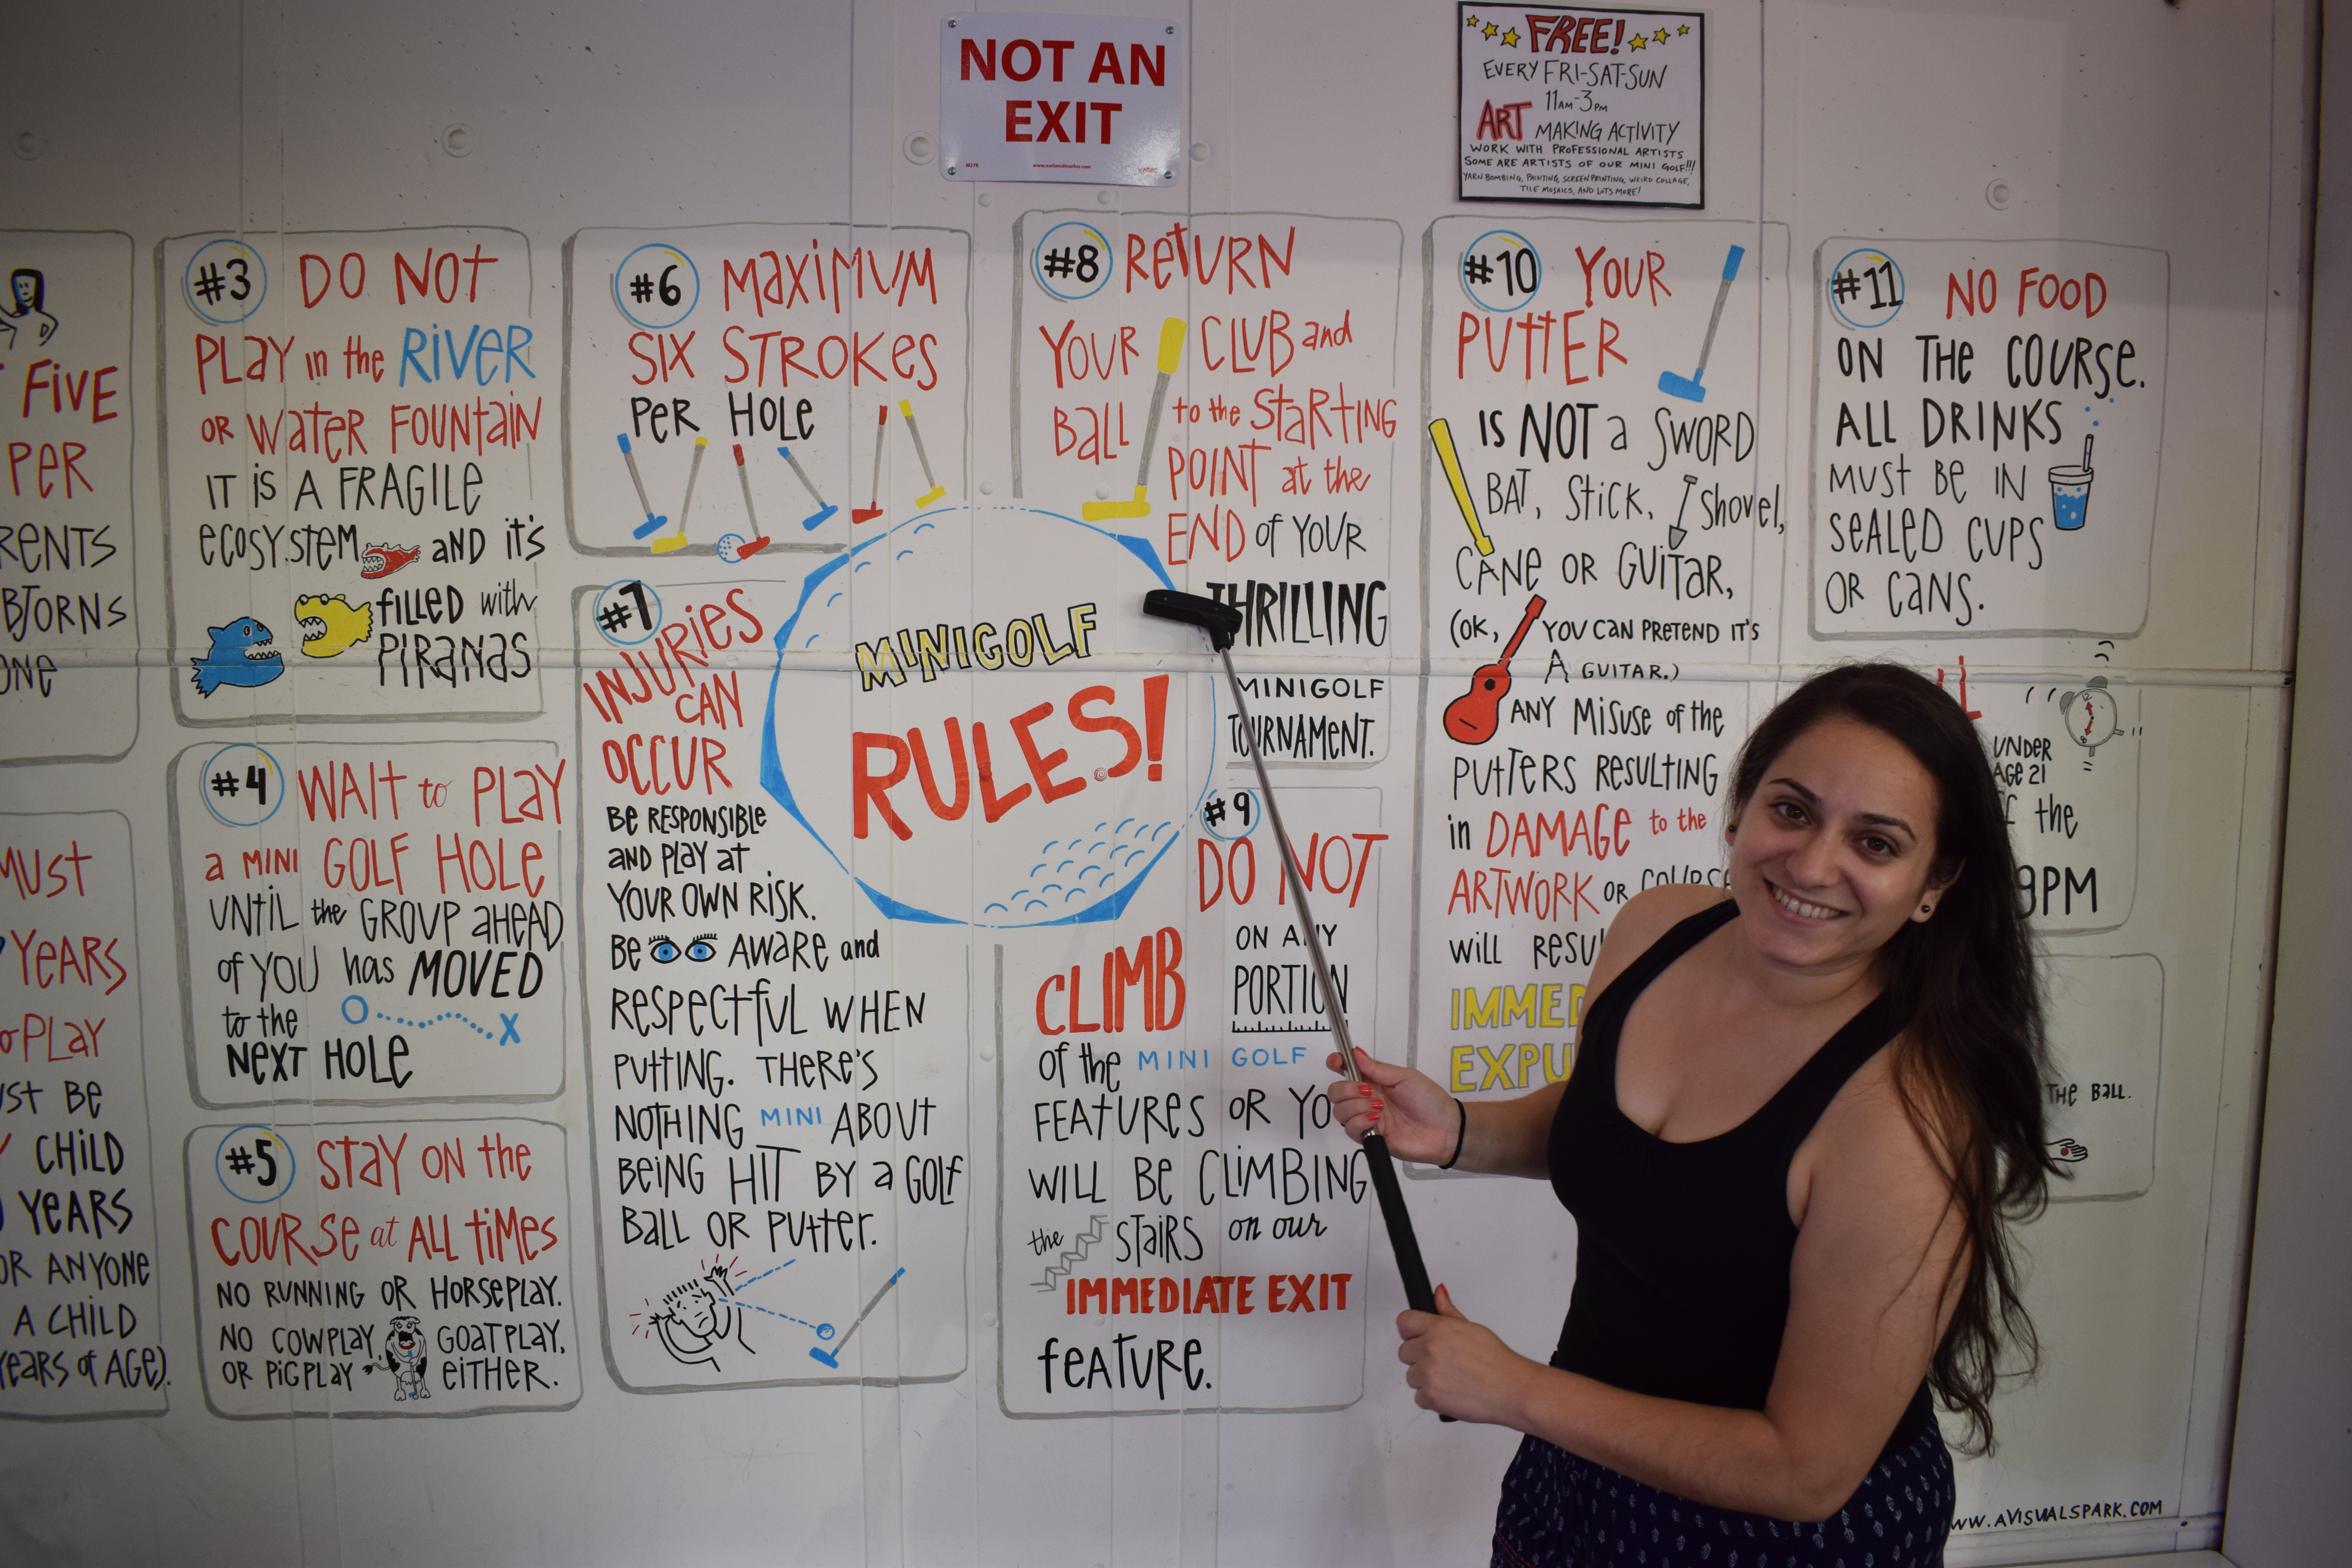 NOT AN
EXIT
FREE!
EVERY FRI-SAT-SUN
11AM-3PM
ART MAKING ACTIVITY
WORK WITH PROFESSIONAL ARTISTS
SOME ARE ARTISTS OF OUR MINI GOLF!!!
YARN BOMBING, PAINTING, SCREEN PRINTING, WEIRD COLLAGE,
TILE MOSAICS, AND LOTS MORE!
FIVE
PER
BJORNS
ONE
MUST
YEARS
PLAY
BE
CHILD
YEARS
OR ANYONE
A CHILD
YEARS of AGE).
#3 DO NOT
PLAY in the RIVER
OR WATER FOUNTAIN
IT IS A FRAGILE
ECOSYSTEM AND IT'S
FILLED with
PIRANAS
#4 WAIT to PLAY
a MINI GOLF HOLE
UNTIL the GROUP AHEAD
of YOU has MOVED
to the
NEXT HOLE
#5 STAY ON the
COURSE at ALL TIMES
NO RUNNING OR HORSEPLAY.
NO COWPLAY, GOATPLAY,
OR PIGPLAY EITHER.
#6 MAXIMUM
SIX STROKES
PER HOLE
#7
INJURIES
CAN
OCCUR
BE RESPONSIBLE
AND PLAY AT
YOUR OWN RISK.
BE AWARE and
RESPECTFUL WHEN
PUTTING. THERE'S
NOTHING MINI ABOUT
BEING HIT BY a GOLF
BALL OR PUTTER.
MINIGOLF
RULES!
#8 RETURN
YOUR CLUB and
BALL to the STARTING
POINT at the
END of YOUR
THRILLING
MINIGOLF
TOURNAMENT.
#9
DO NOT
CLIMB ON ANY
PORTION
of the MINI GOLF
FEATURES OR YO
WILL BE CLIMBING
the STAIRS on our
IMMEDIATE EXIT
FEATURE.
#10 YOUR
PUTTER
IS NOT a SWORD
BAT, STICK, Shovel,
CANE OR GUITAR,
(OK, YOU CAN PRETEND IT'S
A GUITAR.)
ANY MISUSE of the
PUTTERS RESULTING
in DAMAGE to the
ARTWORK OR COURSE
will RESU
IMMED
EXPU
#11 NO FOOD
ON THE COURSE.
ALL DRINKS
MUST BE IN
SEALED CUPS
OR CANS.
UNDER
AGE 21
the
9PM
THE BALL.
WW.AVISUALSPARK.COM